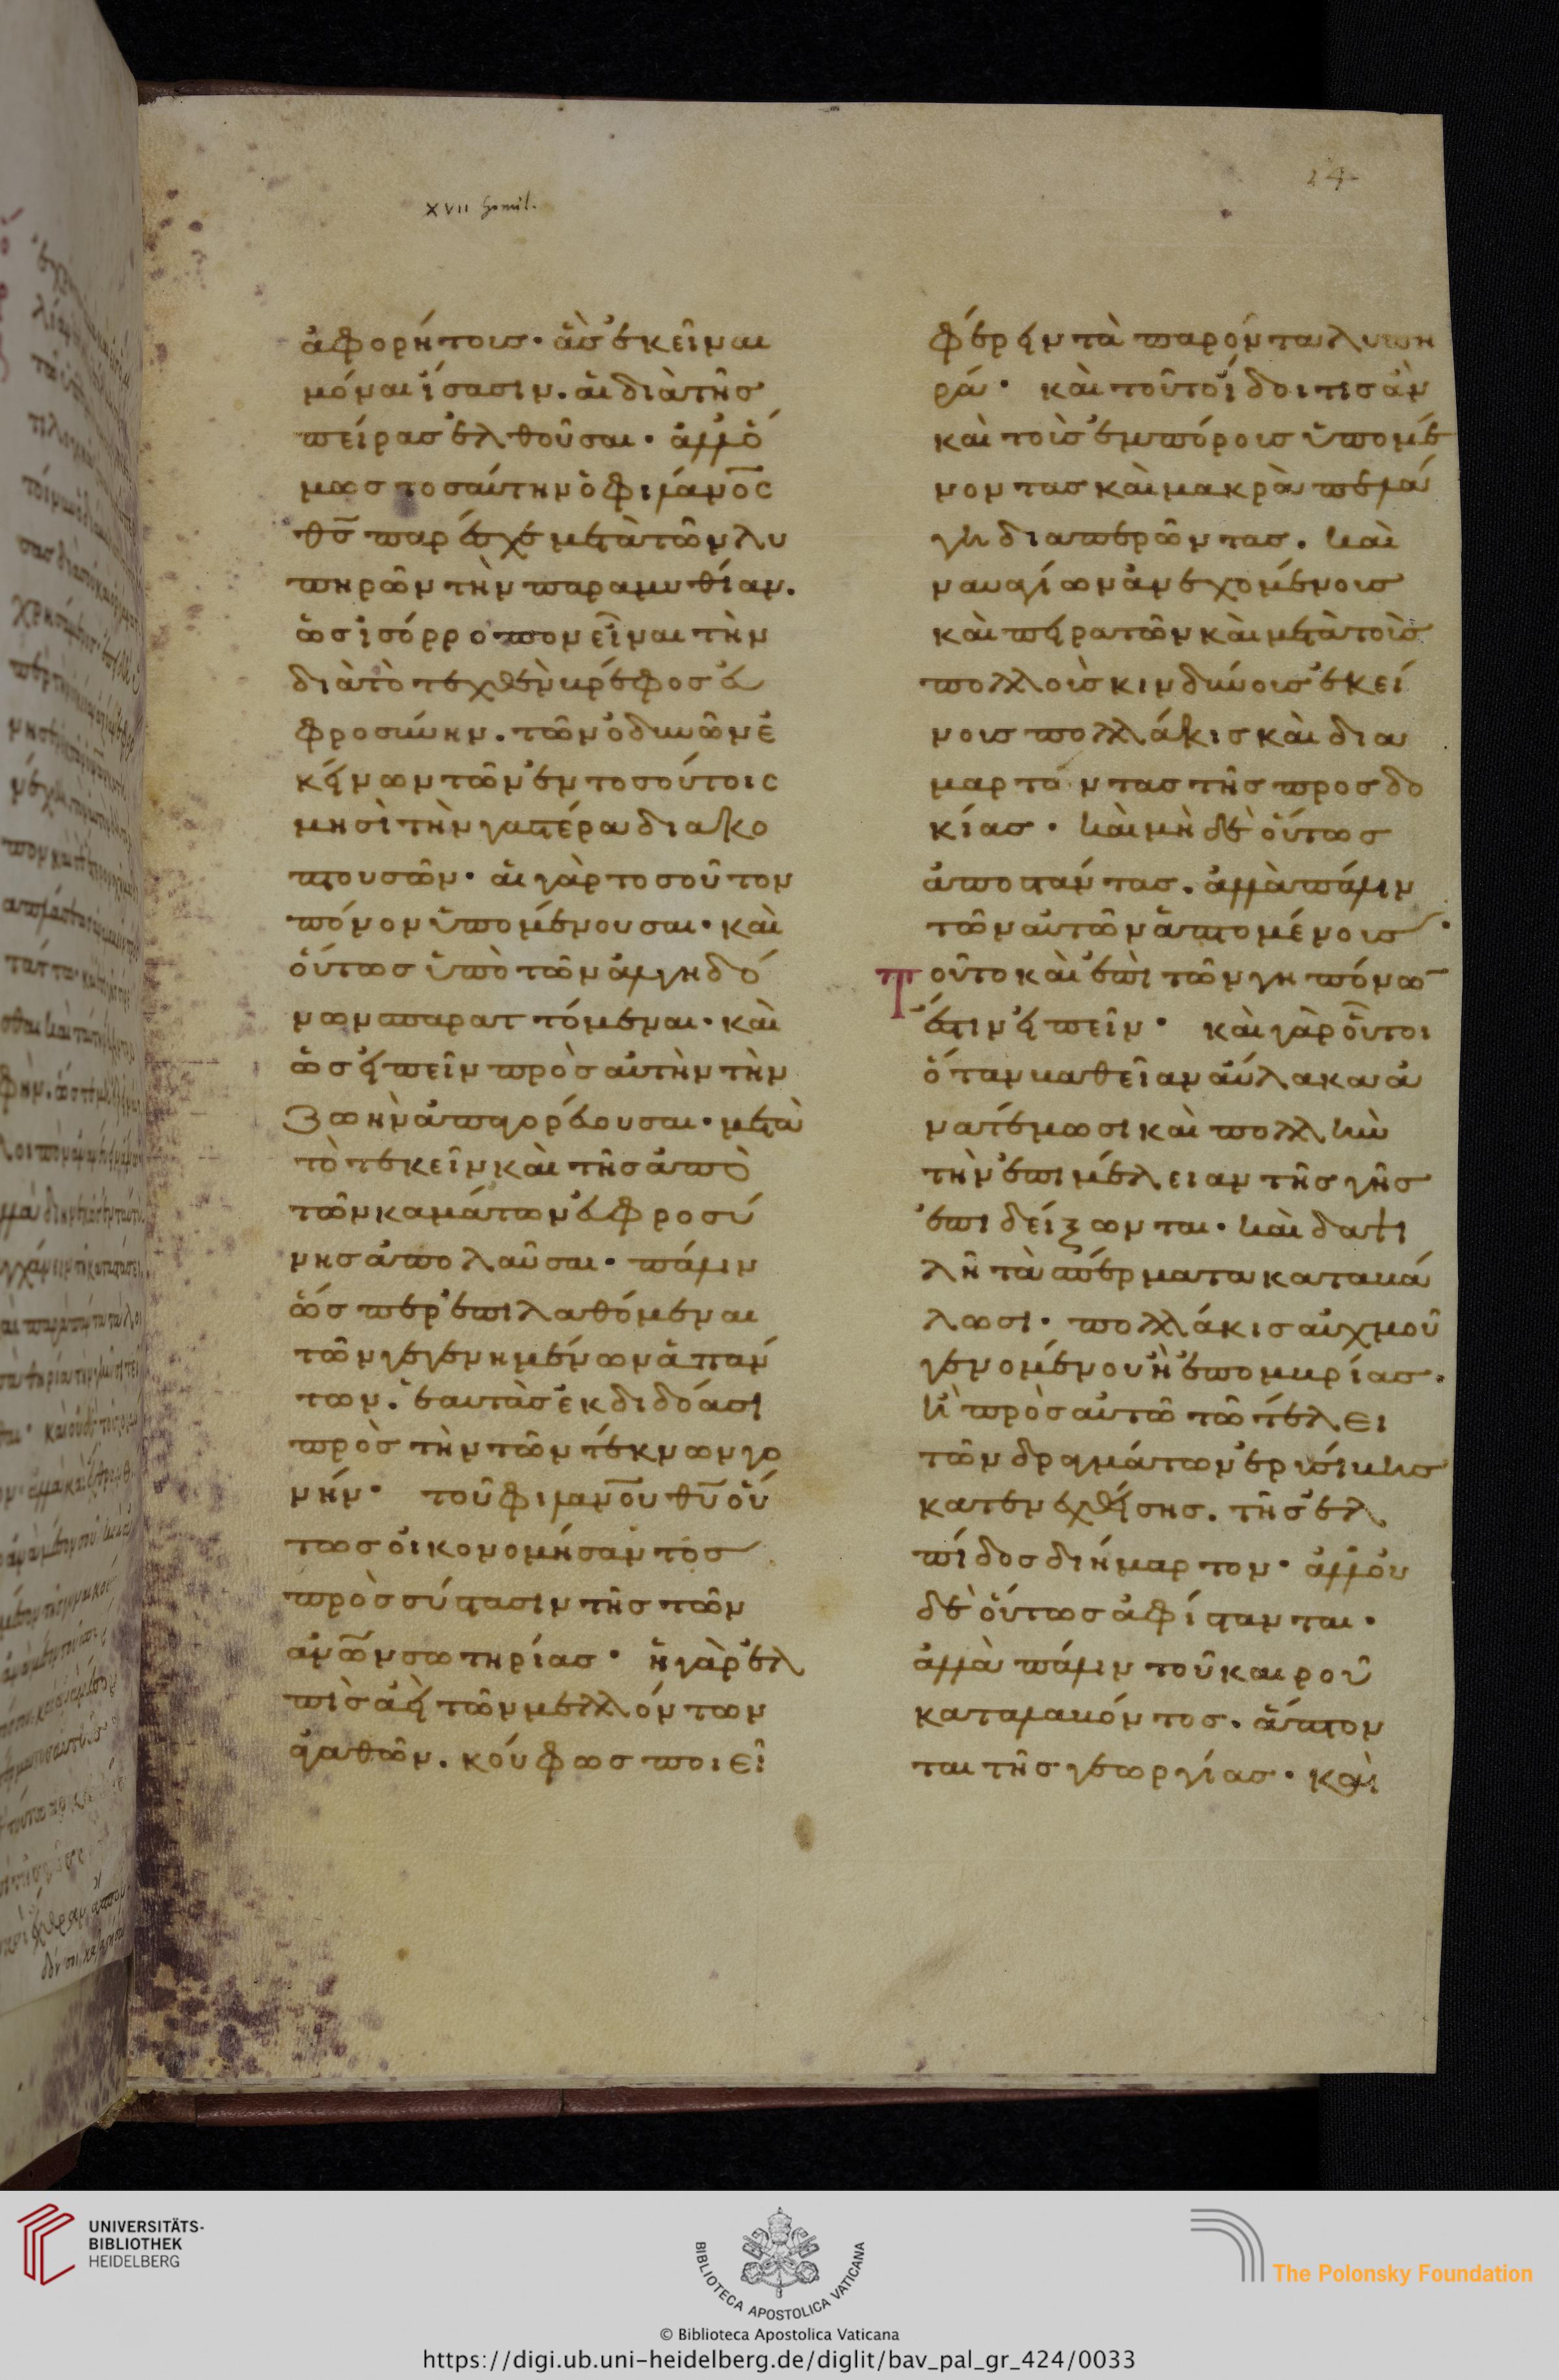 XVII homil.
24
ἀφορήτοις· ἃς ἐκεῖναι
μόναι ἴσασιν. αἱ διὰ τῆς
πείρας ἐλθοῦσαι· ἀλλ' ὅ
μως τοσαύτην ὁ φιλάνο̅ς
θ̅ς παρέσχε μετὰ τῶν λυ
πηρῶν τὴν παραμυθίαν.
ὡς ἰσόρροπον εἶναι τὴν
διὰ τὸ τεχθὲν βρέφος εὐ
φροσύνην. τῶν ὀδυνῶν ἐ
κείνων τῶν ἐν τοσούτοις
μησὶ τὴν γαστέρα διακο
πτουσῶν· αἱ γὰρ τοσοῦτον
πόνον ὑπομένουσαι· καὶ
οὕτως ὑπὸ τῶν ἀλγηδό
νων σπαραττόμεναι· καὶ
ὡς εἰπεῖν πρὸς αὐτὴν τὴν
ζωὴν ἀπαγορεύουσαι· μετὰ
τὸ τεκεῖν καὶ τῆς ἀπὸ
τῶν καμάτων εὐφροσύ
νης ἀπολαῦσαι· πάλιν
ὥσπερ ἐπιλαθόμεναι
τῶν γεγενημένων ἁπάν
των. ἑαυτὰς ἐκδιδόασι
πρὸς τὴν τῶν τέκνων γο
νήν· τοῦ φιλανο̅υ θ̅υ οὕ
τως οἰκονομήσαντος
πρὸς σύστασιν τῆς τῶν
ἀνω̅ν σωτηρίας· ἡ γὰρ ἐλ
πὶς ἀεὶ τῶν μελλόντων
ἀγαθῶν. κούφως ποιεῖ
φέρειν τὰ παρόντα λυπη
ρά· καὶ τοῦτο ἴδοι τις ἂν
καὶ τοῖς ἐμπόροις ὑπομέ
νοντας καὶ μακρὰ πελά
γη διαπερῶντας. καὶ
ναυαγίων ἀνεχομένοις
καὶ πειρατῶν καὶ μετὰ τοῖς
πολλοῖς κινδύνοις ἐκεί
νοις πολλάκις καὶ δια
μαρτάντας τῆς προσδο
κίας· καὶ μὴ δὲ οὕτως
ἀποστάντας. ἀλλὰ πάλιν
τῶν αὐτῶν ἁπτομένοις·
Τοῦτο καὶ ἐπὶ τῶν γηπόνω̅
ἔστιν εἰπεῖν· καὶ γὰρ οὗτοι
ὅταν βαθεῖαν αὔλακα ἀ
νατέμωσι καὶ πολλὴν
τὴν ἐπιμέλειαν τῆς γῆς
ἐπιδείξωνται· καὶ δαψι
λῆ τὰ σπέρματα καταβά
λωσι· πολλάκις αὐχμοῦ
γενομένου ἢ ἐπομβρίας.
ἢ πρὸς αὐτῶ τῶ τέλει
τῶν δραγμάτων ἐρυσίβης
κατενεχθείσης. τῆς ἐλ
πίδος διήμαρτον· ἀλλ' οὐ
δὲ οὕτως ἀφίστανται·
ἀλλὰ πάλιν τοῦ καιροῦ
καταλαβόντος. ἅπτον
ται τῆς γεωργίας· καὶ
UNIVERSITÄTS-
BIBLIOTHEK
HEIDELBERG
BIBLIOTECA APOSTOLICA VATICANA
The Polonsky Foundation
© Biblioteca Apostolica Vaticana
https://digi.ub.uni-heidelberg.de/diglit/bav_pal_gr_424/0033